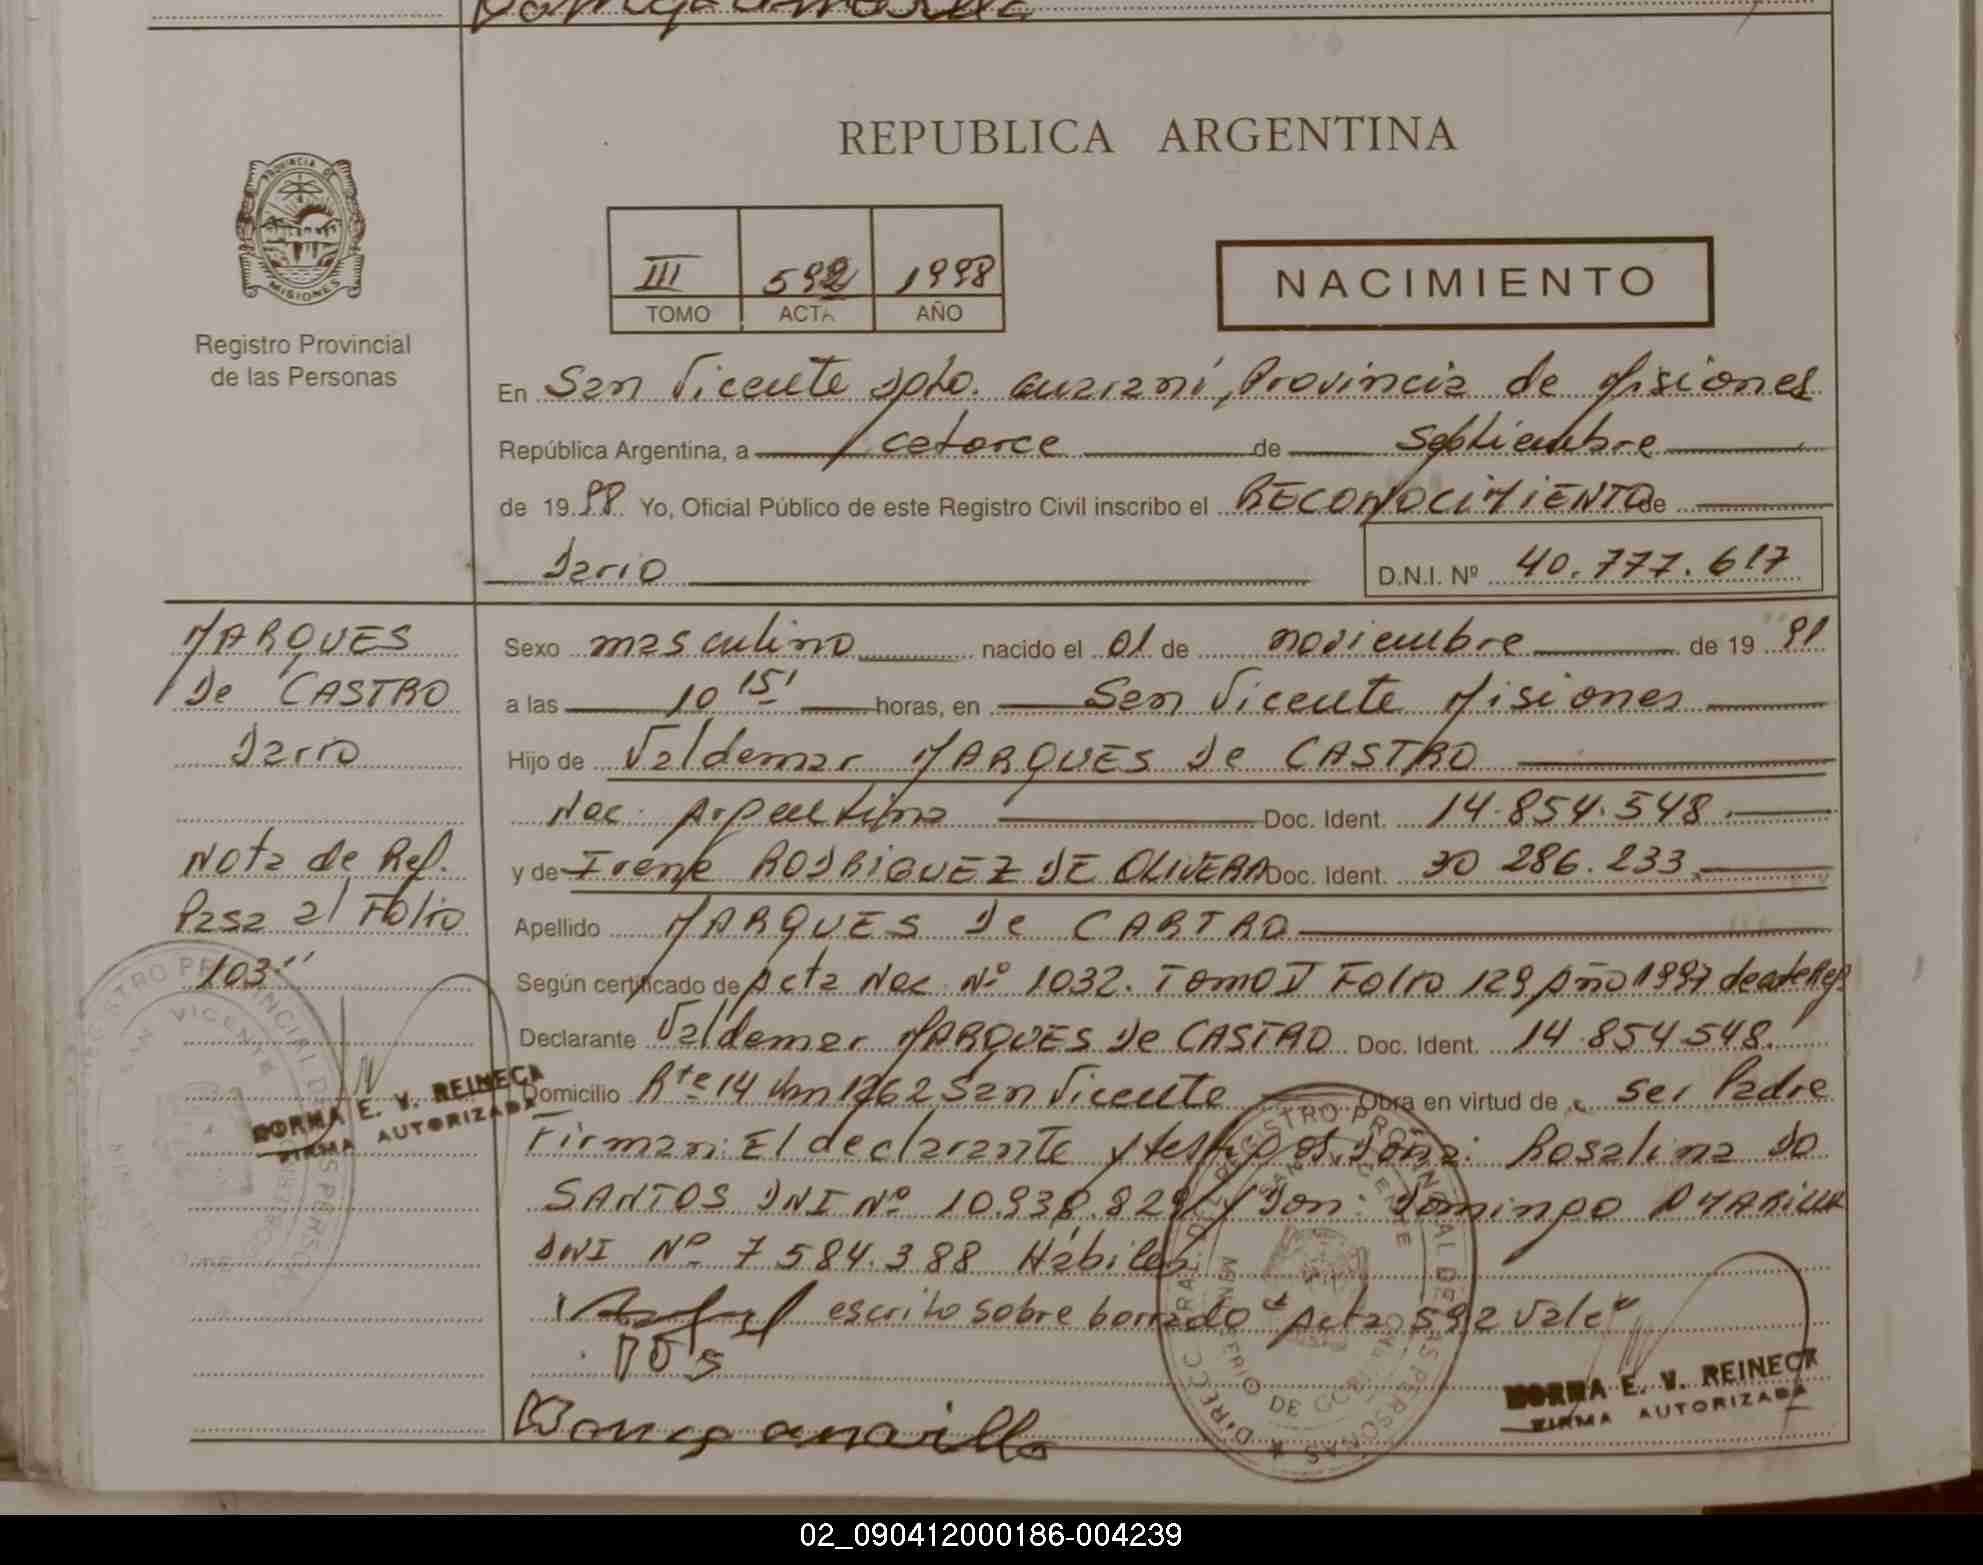 REPUBLICA ARGENTINA
PROVINCIA DE
MISIONES
Registro Provincial
de las Personas
III 592 1998
TOMO ACTA AÑO
NACIMIENTO
En San Vicente Dpto. Guaraní, Provincia de Misiones
República Argentina, a catorce de Septiembre
de 1998 Yo, Oficial Público de este Registro Civil inscribo el RECONOCIMIENTO de
Dario D.N.I. Nº 40.777.617
MARQUES
De CASTRO
Dario
Nota de Ref.
Pasa al Folio
103"
Sexo masculino nacido el 01 de noviembre de 19 91
a las 10 15' horas, en San Vicente Misiones
Hijo de Valdemar MARQUES De CASTRO
Nac. Argentina Doc. Ident. 14.854.548
y de Irene RODRIGUEZ DE OLIVERA Doc. Ident. 30 286.233
Apellido MARQUES De CARTRO
Según certificado de Acta Nac. Nº 1032. Tomo Folio 129 Año 1997 de este Reg.
Declarante Valdemar MARQUES De CASTRO Doc. Ident. 14.854.548.
Domicilio Rta 14 Km 1262 San Vicente Obra en virtud de ser Padre
Firman: El declarante y testigos Doña: Rosalina DO
SANTOS DNI Nº 10.938.829 y Don: Domingo AMARILLA
DNI Nº 7 584.388 Hábiles
escrito sobre borrado "Acta 592 Vale"
NORMA E. V. REINECK
FIRMA AUTORIZADA
NORMA E. V. REINECK
FIRMA AUTORIZADA
02_090412000186-004239